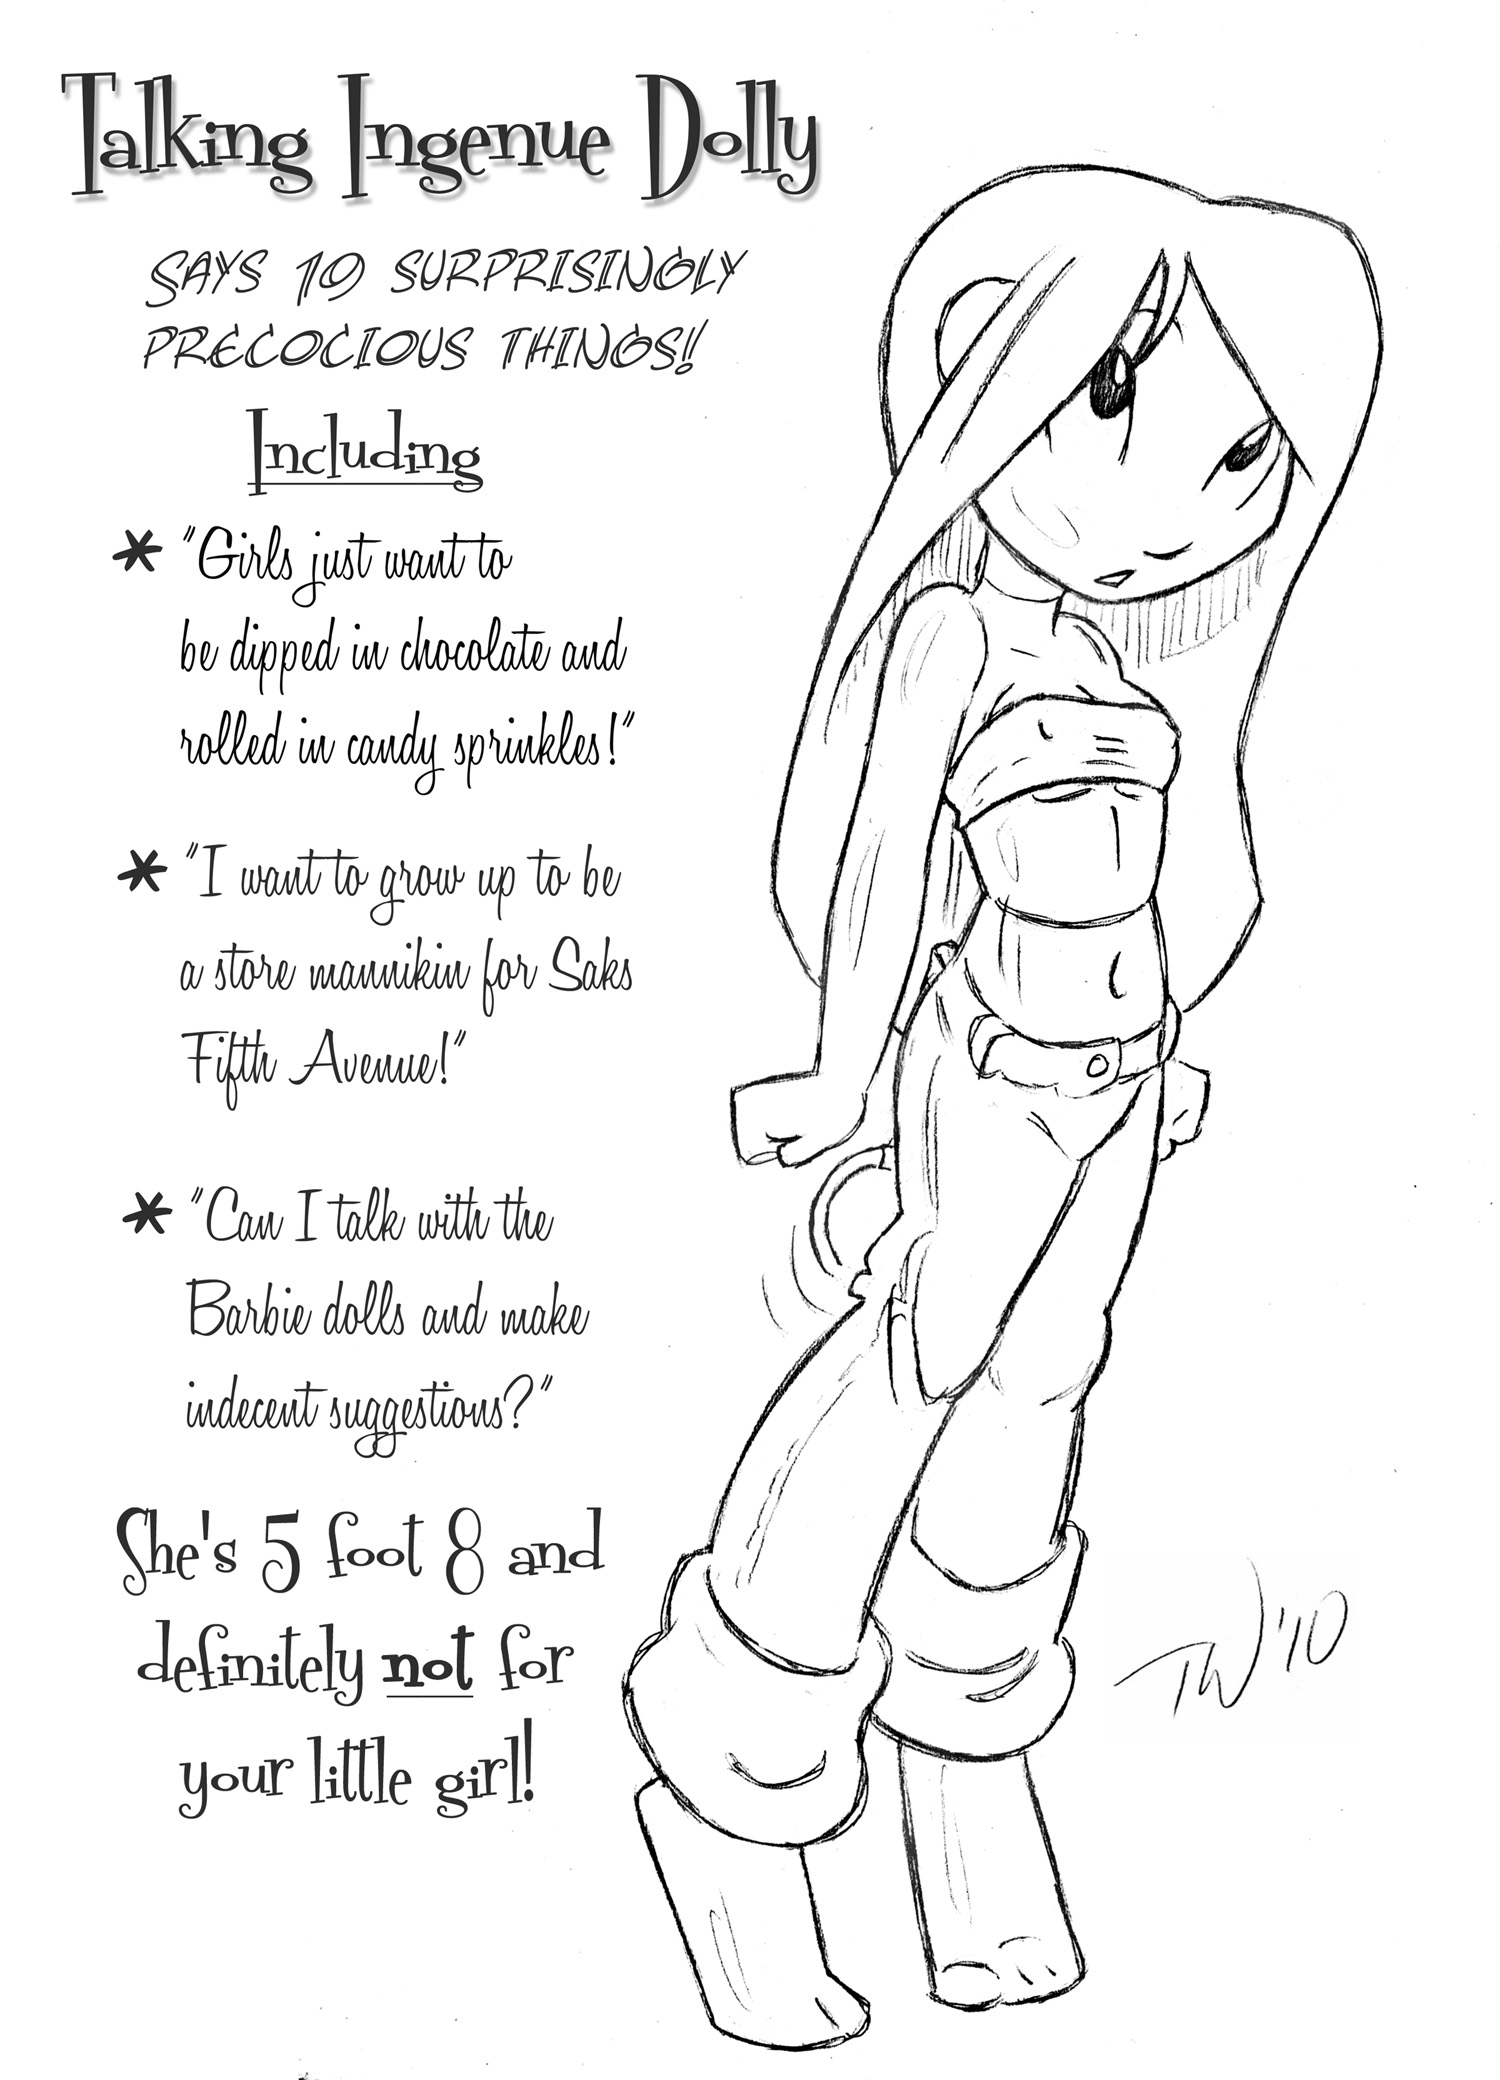 Talking Ingenue Dolly
SAYS 19 SURPRISINGLY
PRECOCIOUS THINGS!!
Including
* "Girls just want to
be dipped in chocolate and
rolled in candy sprinkles!"
* "I want to grow up to be
a store mannikin for Saks
Fifth Avenue!"
* "Can I talk with the
Barbie dolls and make
indecent suggestions?"
She's 5 foot 8 and
definitely not for
your little girl!
TW '10